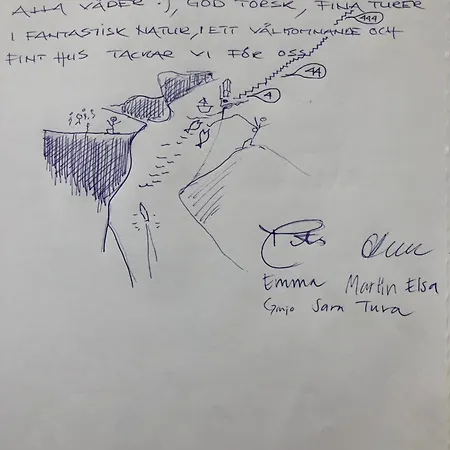 ALLA VÄDER :), GOD TORSK, FINA TURER
I FANTASTISK NATUR, I ETT VÄLKOMNANDE OCH
FINT HUS TACKAR VI FÖR OSS
444
44
4
Emma Martin Elsa
Sara Tuva